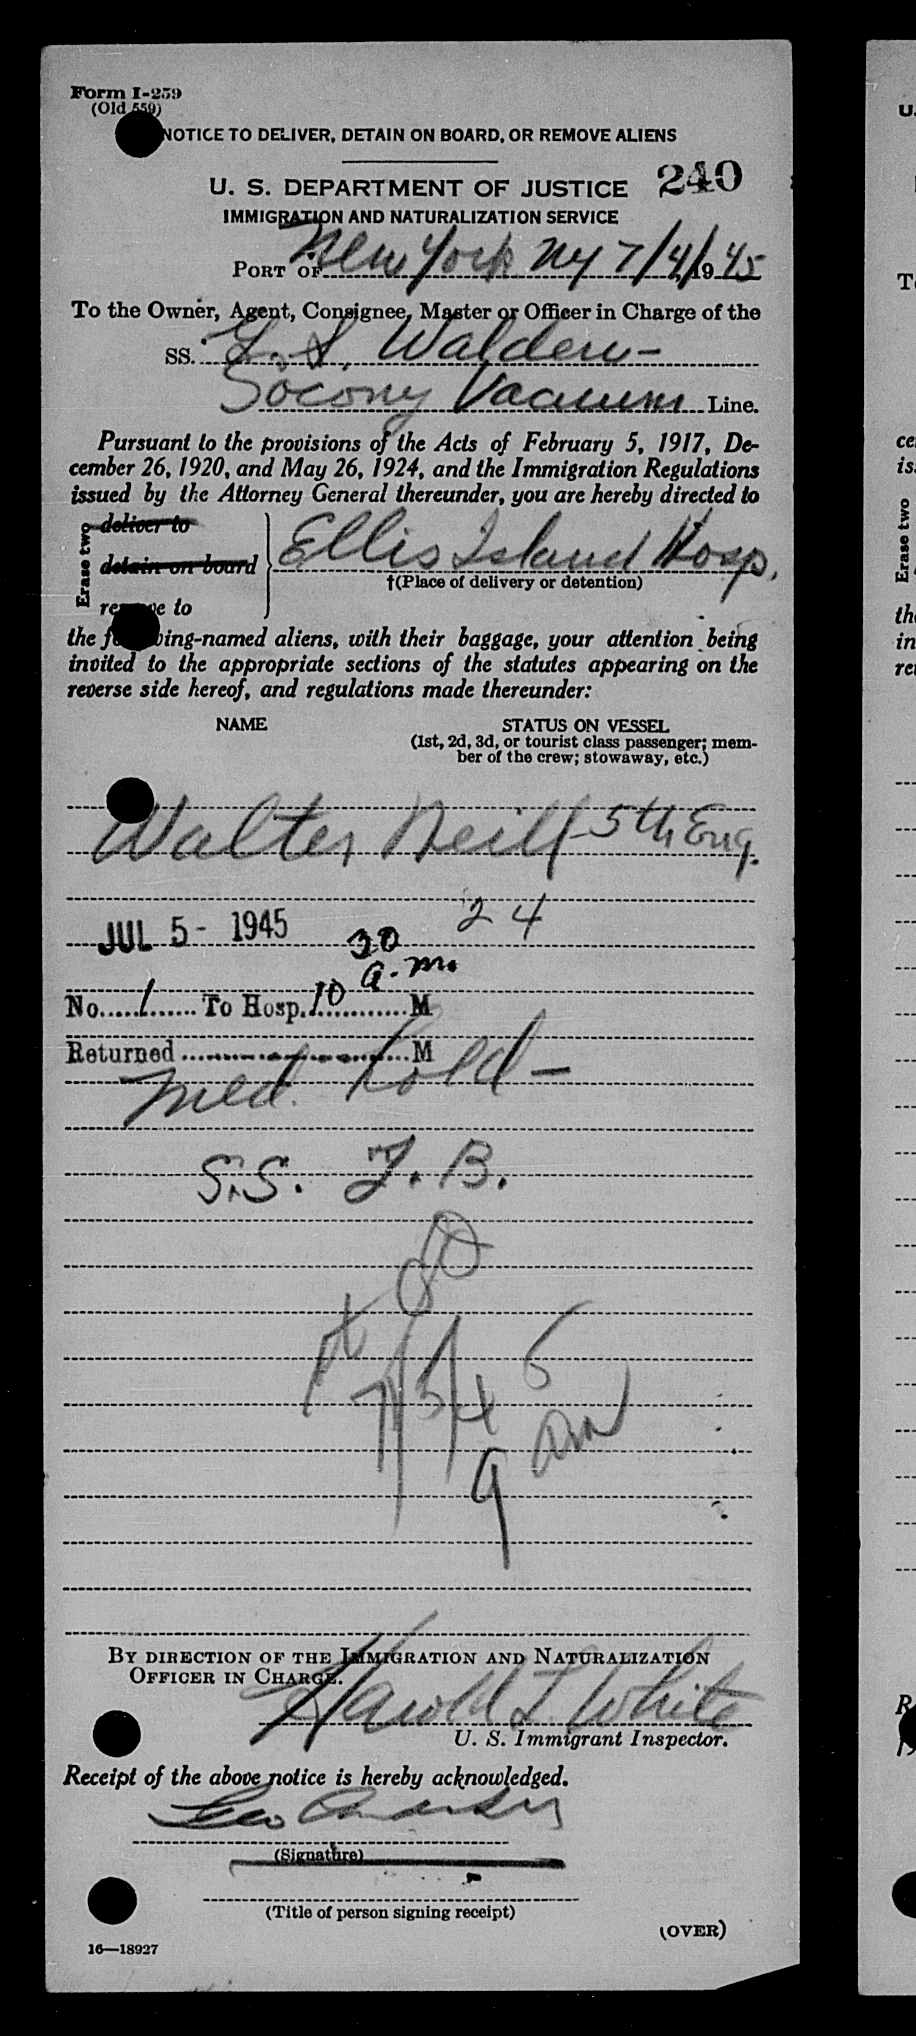 Form I-259
(Old 559)
NOTICE TO DELIVER, DETAIN ON BOARD, OR REMOVE ALIENS
U. S. DEPARTMENT OF JUSTICE 240
IMMIGRATION AND NATURALIZATION SERVICE
PORT OF New York NY 7/4/1945
To the Owner, Agent, Consignee, Master or Officer in Charge of the
SS. G. S. Walden-
Socony Vacuum Line.
Pursuant to the provisions of the Acts of February 5, 1917, De-
cember 26, 1920, and May 26, 1924, and the Immigration Regulations
issued by the Attorney General thereunder, you are hereby directed to
Erase two
deliver to
detain on board
remove to
Ellis Island Hosp.
†(Place of delivery or detention)
the following-named aliens, with their baggage, your attention being
invited to the appropriate sections of the statutes appearing on the
reverse side hereof, and regulations made thereunder:
NAME STATUS ON VESSEL
(1st, 2d, 3d, or tourist class passenger; mem-
ber of the crew; stowaway, etc.)
Walter Neill - 5th Eng.
24
JUL 5 - 1945
30
a.m.
No. 1 To Hosp. 10 M
Returned M
Med. Hold -
S.S. T.B.
7/5/45
9 am
BY DIRECTION OF THE IMMIGRATION AND NATURALIZATION
OFFICER IN CHARGE.
Harold L. White
U. S. Immigrant Inspector.
Receipt of the above notice is hereby acknowledged.
Geo
(Signature)
(Title of person signing receipt)
(OVER)
16—18927